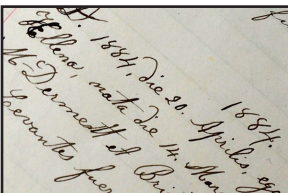 1884.
1884, die 20. Aprilis, eg
Hellena, nata die 14. Mar
McDermett et Bri
Levantes fuer